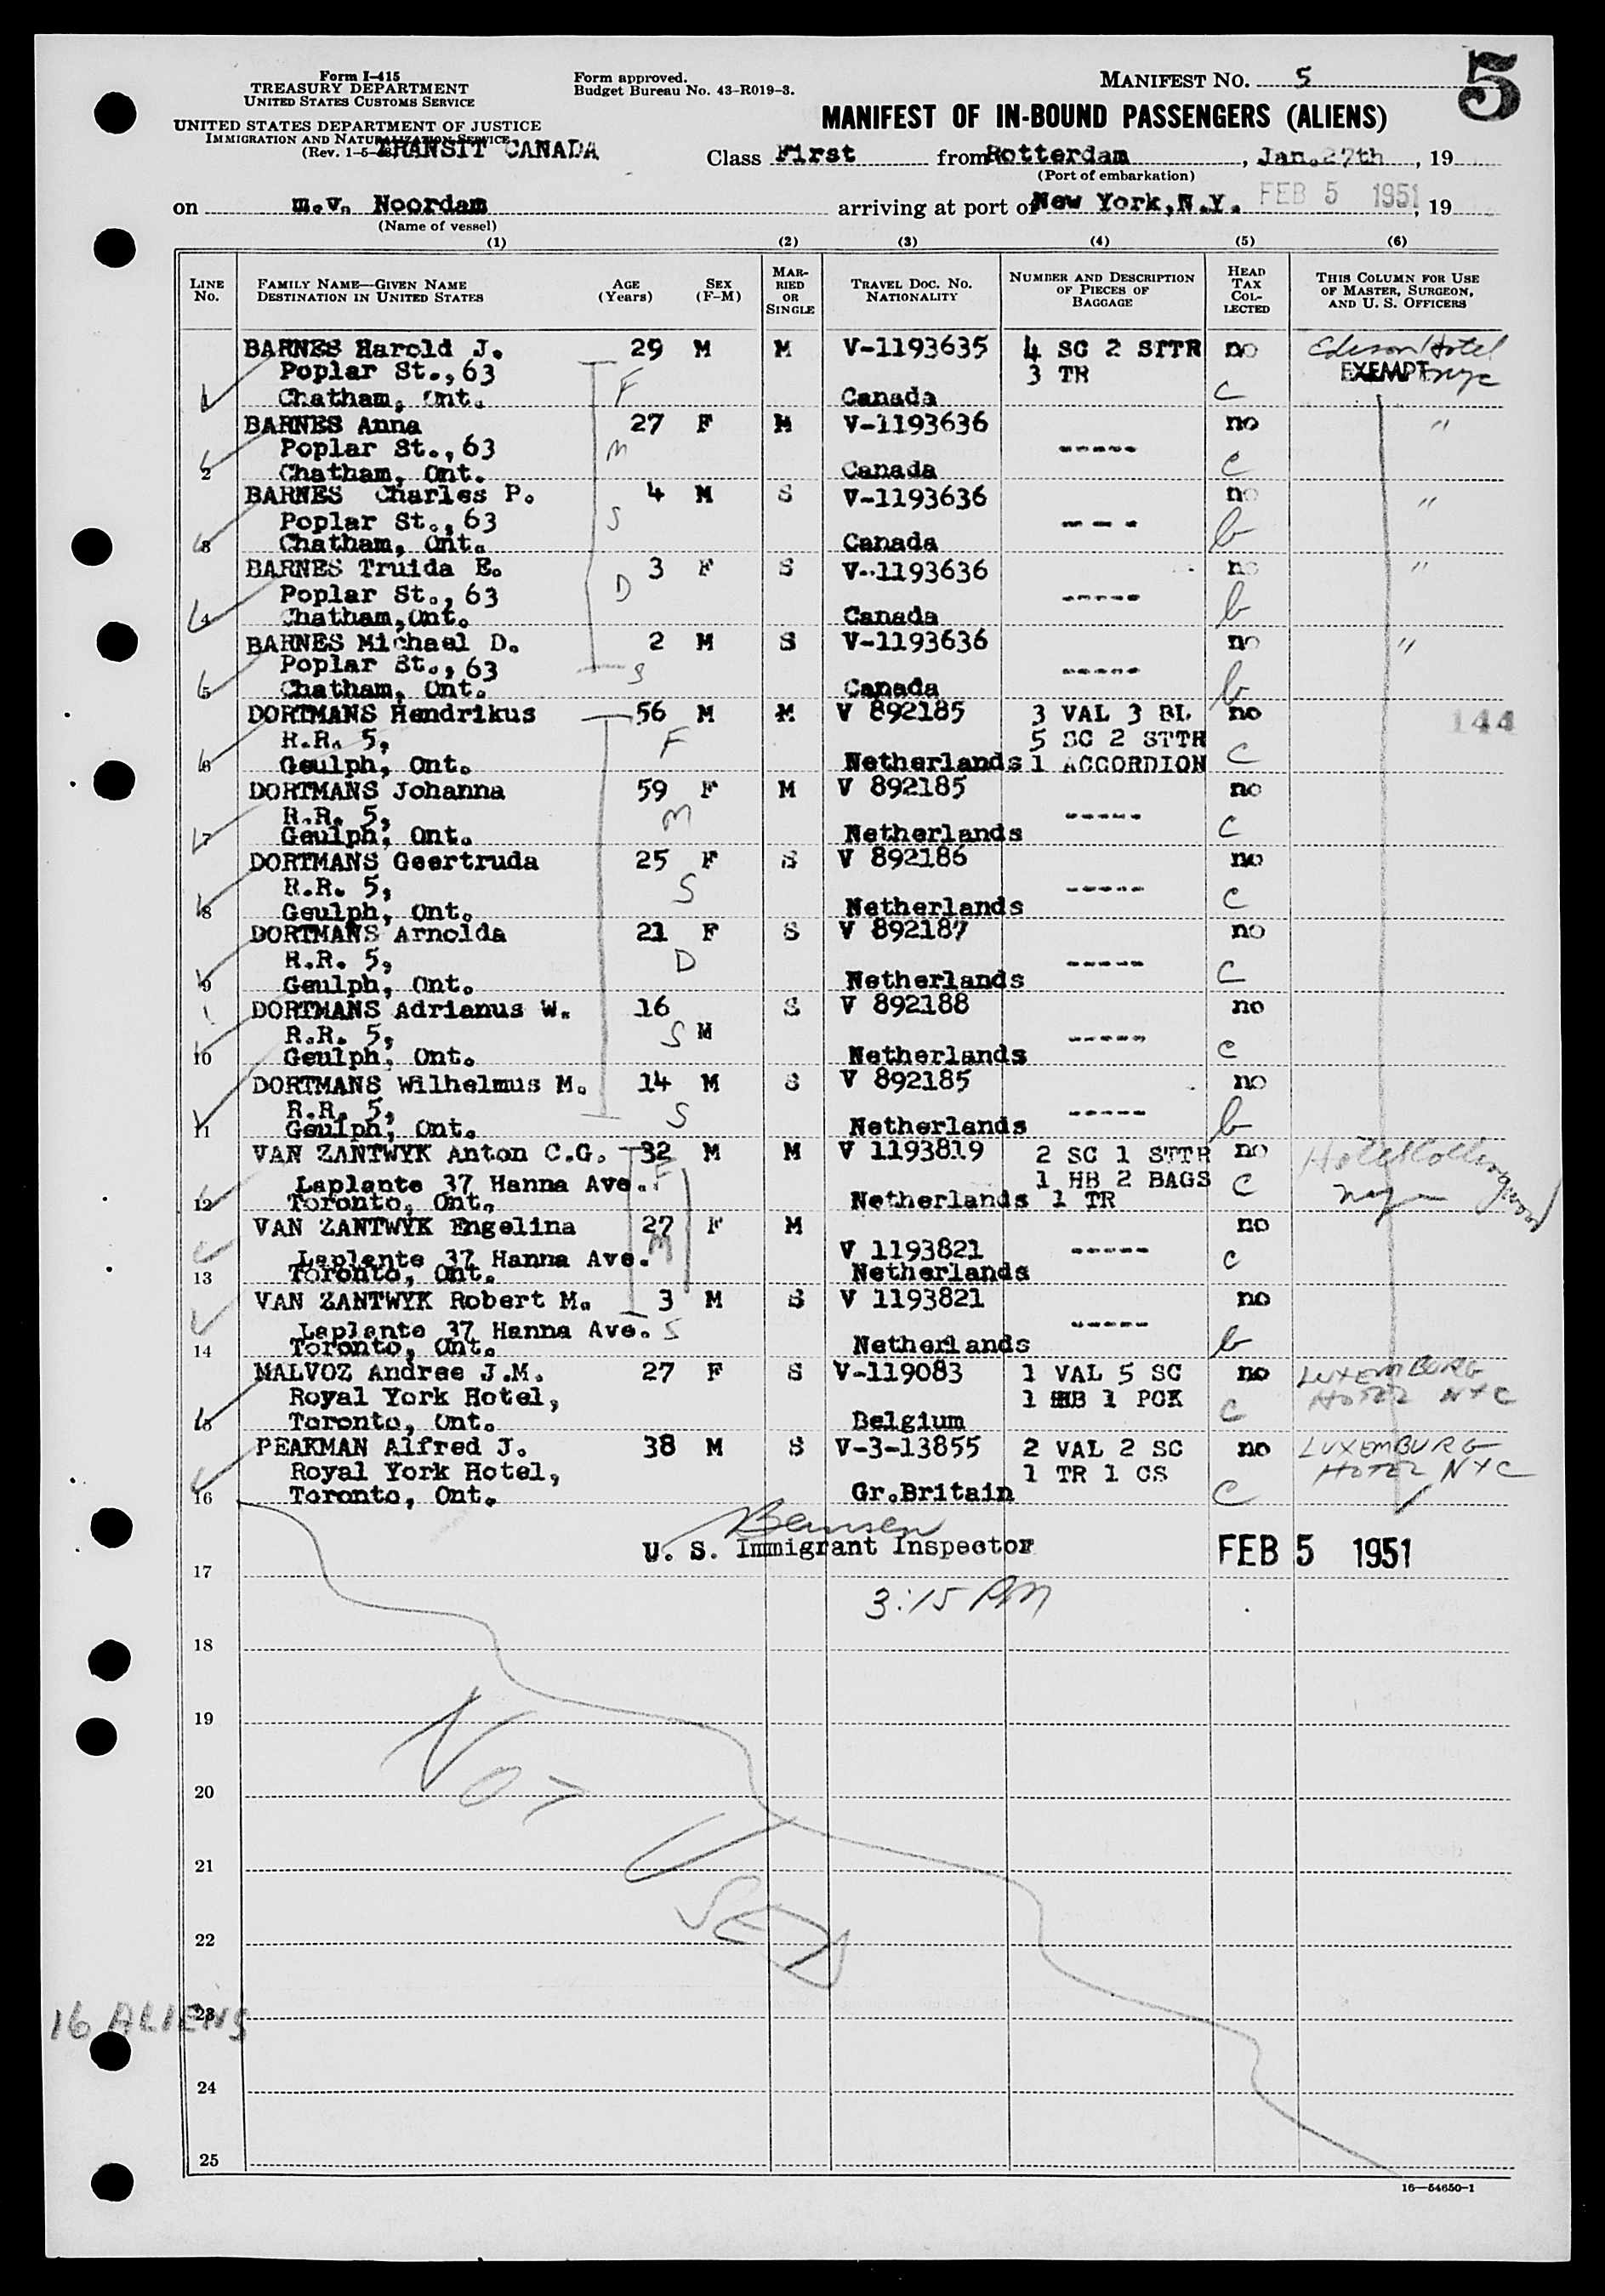 Form I-415
TREASURY DEPARTMENT
UNITED STATES CUSTOMS SERVICE
UNITED STATES DEPARTMENT OF JUSTICE
IMMIGRATION AND NATURALIZATION SERVICE
(Rev. 1-5-
TRANSIT CANADA
Form approved.
Budget Bureau No. 43-R019-3.
MANIFEST NO. 5
5
MANIFEST OF IN-BOUND PASSENGERS (ALIENS)
Class First from Rotterdam, Jan. 27th, 19
(Port of embarkation)
on m.v. Noordam arriving at port of New York, N.Y. FEB 5 1951, 19
(Name of vessel)
(1) (2) (3) (4) (5) (6)
LINE No. FAMILY NAME—GIVEN NAME DESTINATION IN UNITED STATES AGE (Years) SEX (F-M) MARRIED OR SINGLE TRAVEL DOC. NO. NATIONALITY NUMBER AND DESCRIPTION OF PIECES OF BAGGAGE HEAD TAX COLLECTED THIS COLUMN FOR USE OF MASTER, SURGEON, AND U. S. OFFICERS
BARNES Harold J. 29 M M V-1193635 4 SC 2 STTR no Edison Hotel
Poplar St., 63 F 3 TR EXEMPT nyc
1 Chatham, Ont. Canada C
BARNES Anna 27 F M V-1193636 no "
Poplar St., 63 M -----
2 Chatham, Ont. Canada C
BARNES Charles P. 4 M S V-1193636 no "
Poplar St., 63 S ----
3 Chatham, Ont. Canada b
BARNES Truida E. 3 F S V-1193636 no "
Poplar St., 63 D -----
4 Chatham, Ont. Canada b
BARNES Michael D. 2 M S V-1193636 no "
Poplar St., 63 S -----
5 Chatham, Ont. Canada b
DORTMANS Hendrikus 56 M M V 892185 3 VAL 3 BL no 144
R.R. 5, F 5 SC 2 STTR
6 Geulph, Ont. Netherlands 1 ACCORDION C
DORTMANS Johanna 59 F M V 892185 no
R.R. 5, M -----
7 Geulph, Ont. Netherlands C
DORTMANS Geertruda 25 F S V 892186 no
R.R. 5, S -----
8 Geulph, Ont. Netherlands C
DORTMANS Arnolda 21 F S V 892187 no
R.R. 5, D -----
9 Geulph, Ont. Netherlands C
DORTMANS Adrianus W. 16 S V 892188 no
R.R. 5, S M -----
10 Geulph, Ont. Netherlands C
DORTMANS Wilhelmus M. 14 M S V 892185 no
R.R. 5, S -----
11 Geulph, Ont. Netherlands b
VAN ZANTWYK Anton C.G. 32 M M V 1193819 2 SC 1 STTR no Hotel
Laplante 37 Hanna Ave. F 1 HB 2 BAGS C
12 Toronto, Ont. Netherlands 1 TR
VAN ZANTWYK Engelina 27 F M no
Laplante 37 Hanna Ave. M V 1193821 ----- C
13 Toronto, Ont. Netherlands
VAN ZANTWYK Robert M. 3 M S V 1193821 no
Laplante 37 Hanna Ave. S -----
14 Toronto, Ont. Netherlands b
MALVOZ Andree J.M. 27 F S V-119083 1 VAL 5 SC no LUXEMBURG
Royal York Hotel, 1 HB 1 PCK HOTEL NYC
15 Toronto, Ont. Belgium C
PEAKMAN Alfred J. 38 M S V-3-13855 2 VAL 2 SC no LUXEMBURG
Royal York Hotel, 1 TR 1 CS HOTEL NYC
16 Toronto, Ont. Gr.Britain C
U. S. Immigrant Inspector FEB 5 1951
17
3:15 PM
18
19
NOT
20
21
USED
22
23
16 ALIENS
24
25
16—54650-1